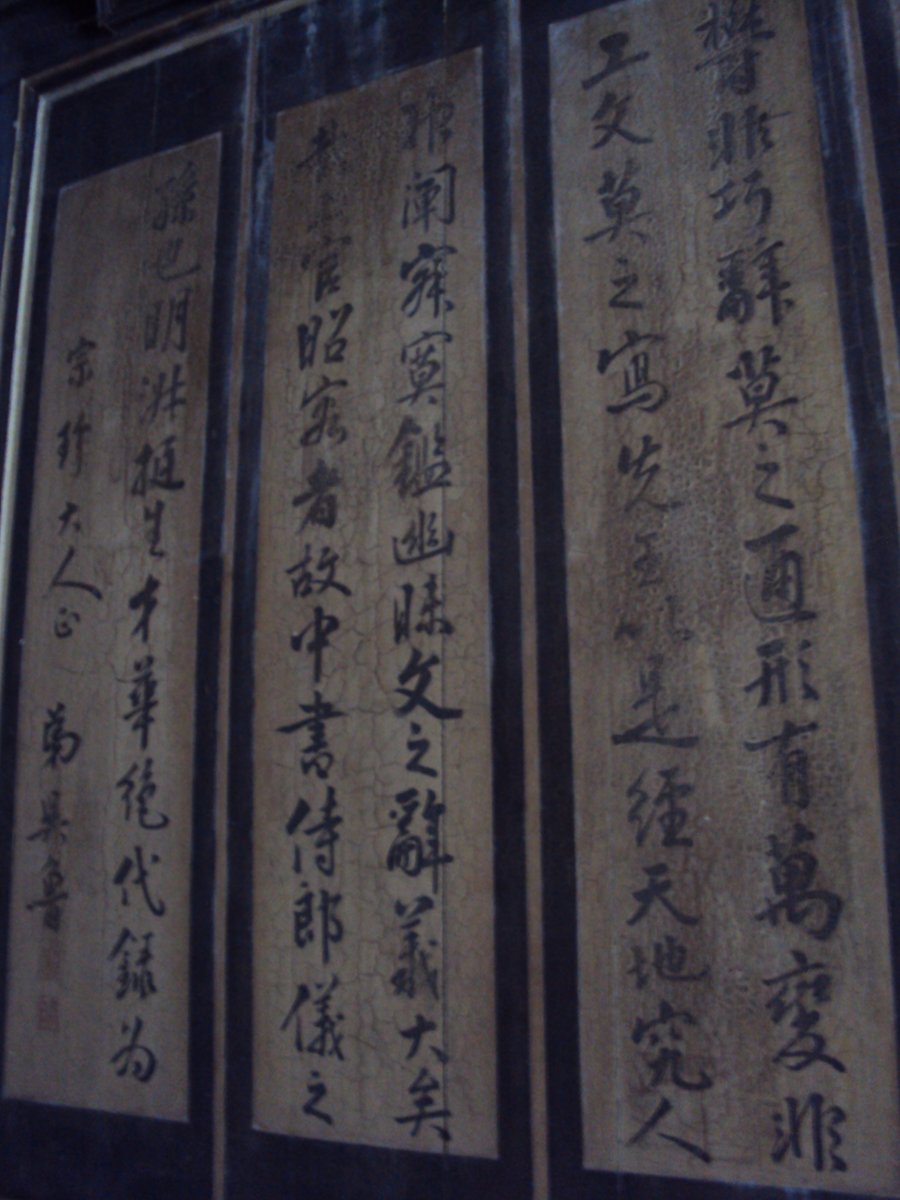 欝非巧辭莫之通形有萬變非
工文莫之寫先王以是經天地究人
神闡寂寞鑑幽昧文之辭義大矣
哉上官昭容者故中書侍郎儀之
孫也明淑挺生才華絕代錄為
宗珍大人正 弟吳魯